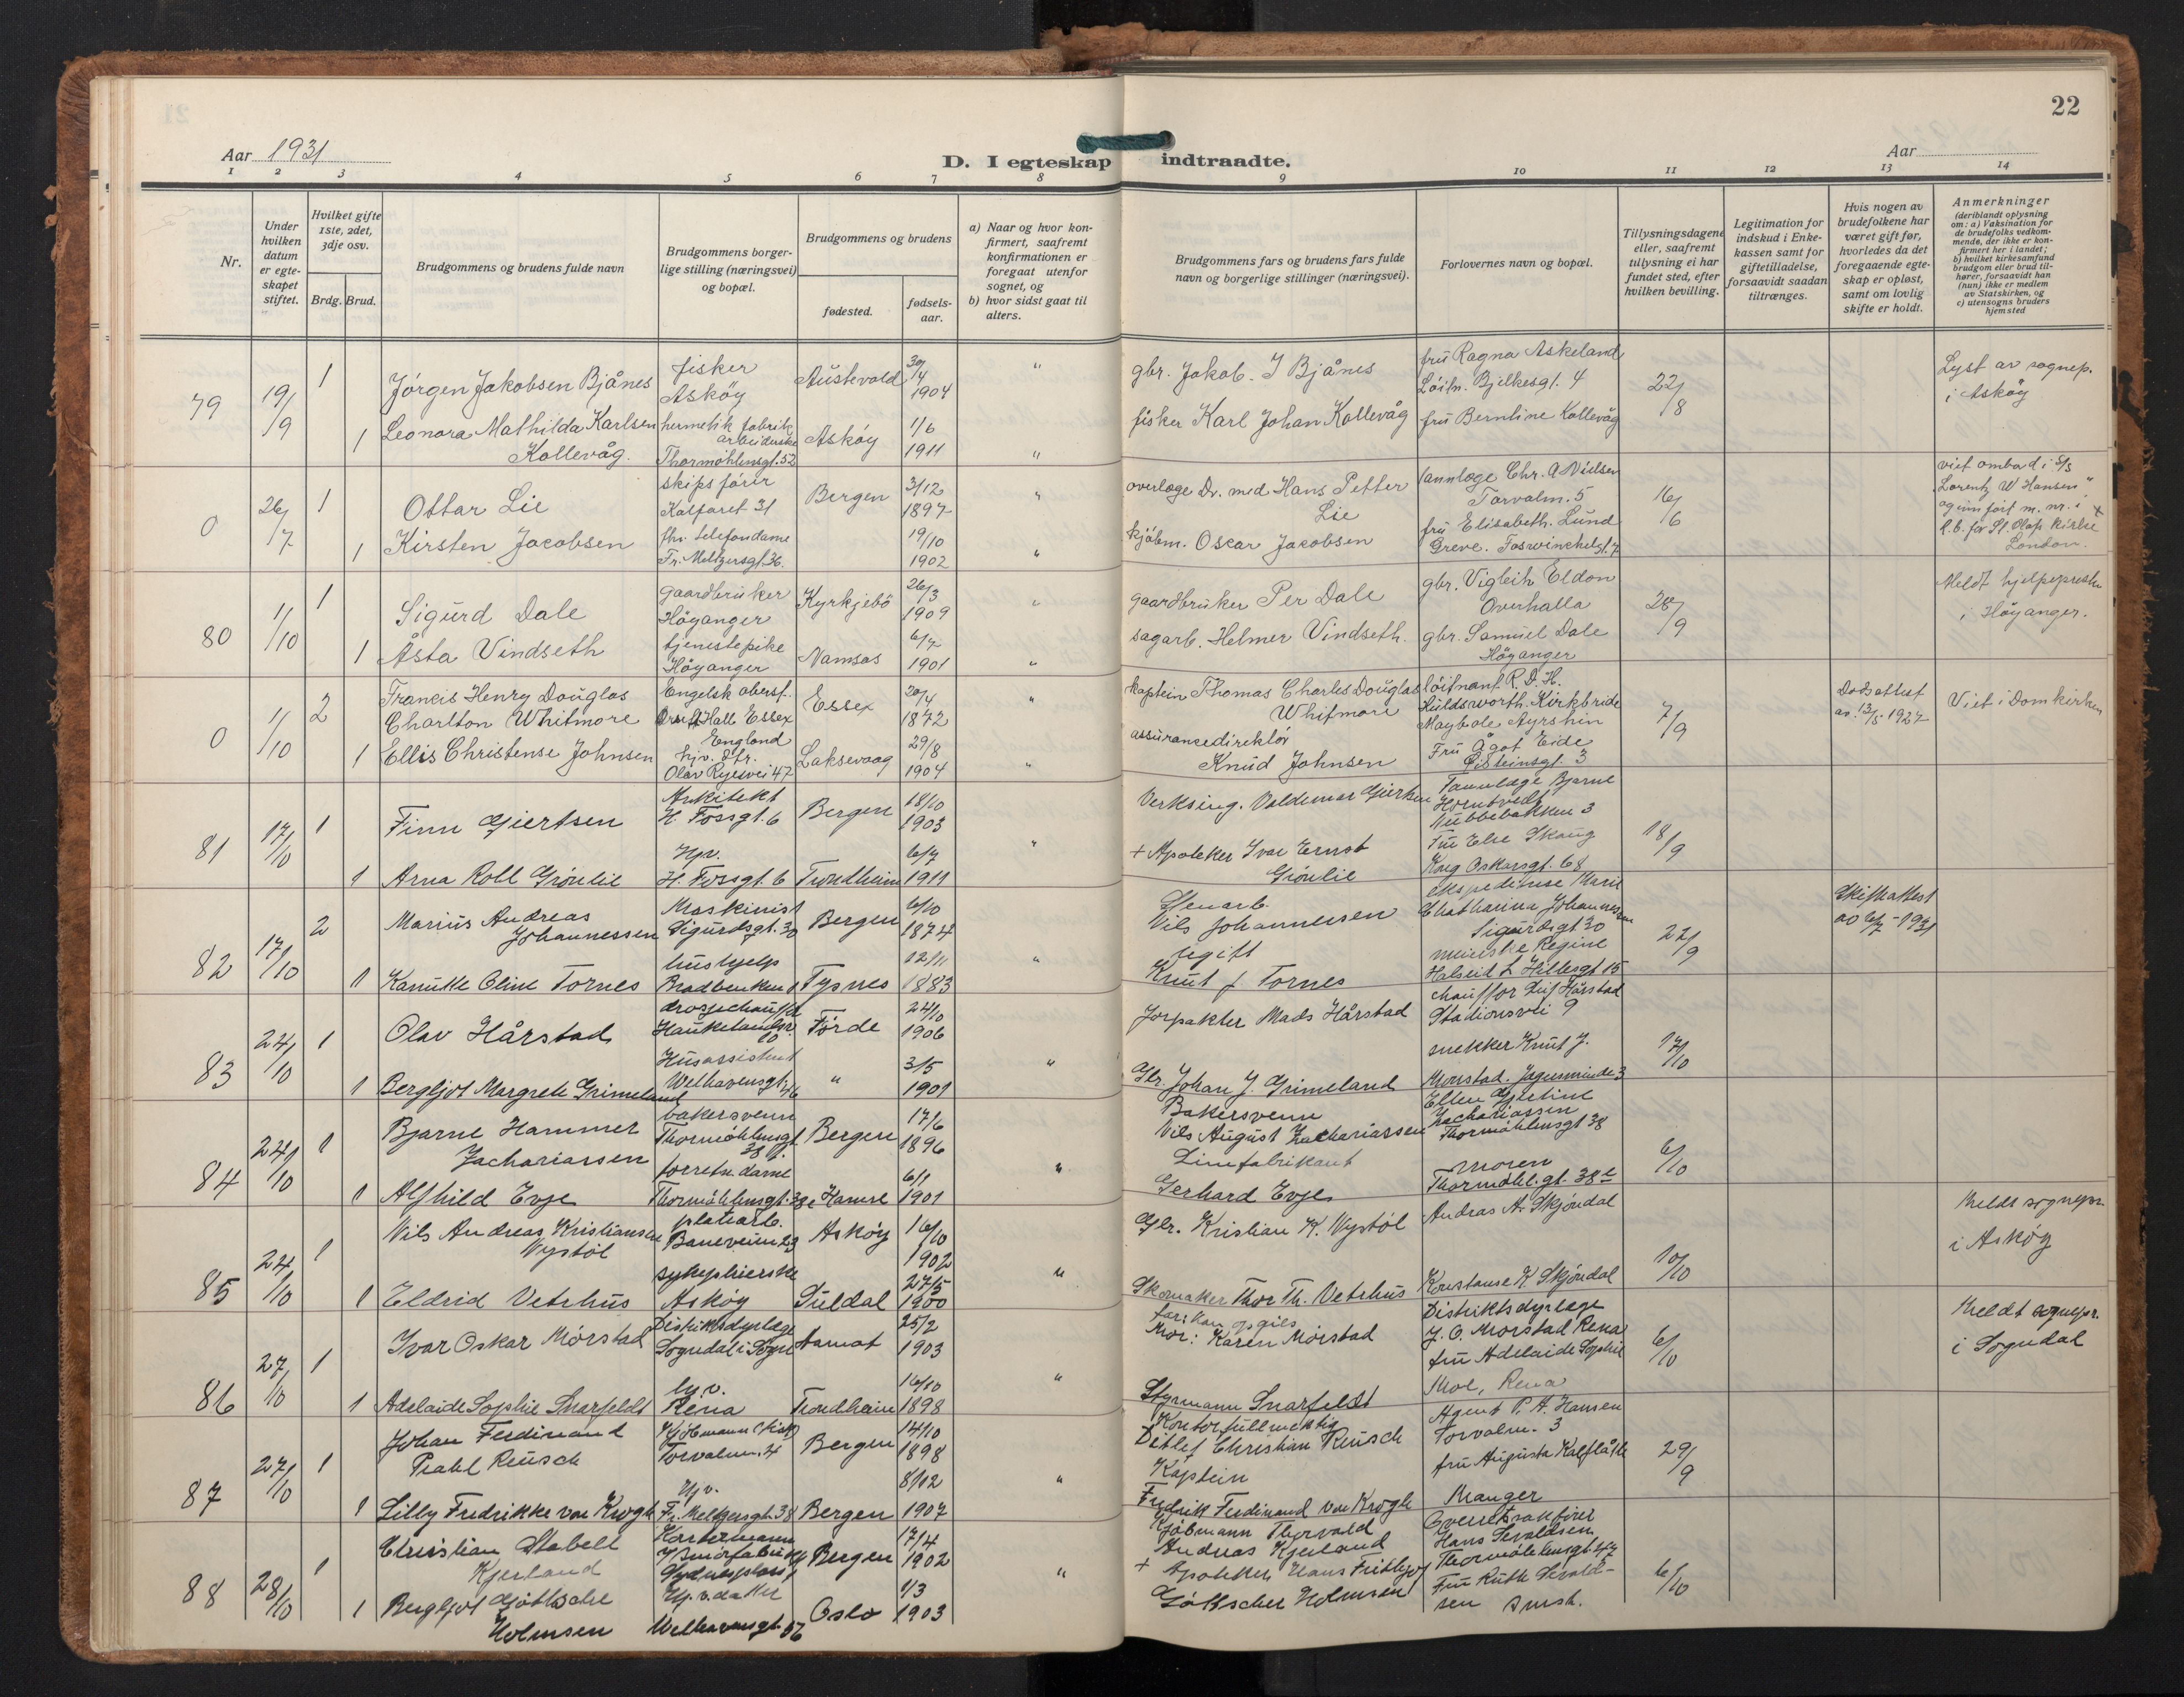 22
Aar 1931
D. I egteskap indtraadte.
Aar
1 2 3 4 5 6 7 8 9 10 11 12 13 14
Nr.
Under hvilken datum er egteskapet stiftet.
Hvilket gifte 1ste, 2det, 3dje osv.
Brdg. Brud.
Brudgommens og brudens fulde navn
Brudgommens borgerlige stilling (næringsvei) og bopæl.
Brudgommens og brudens
fødested.
fødselsaar.
a) Naar og hvor konfirmert, saafremt konfirmationen er foregaat utenfor sognet, og
b) hvor sidst gaat til alters.
Brudgommens fars og brudens fars fulde navn og borgerlige stillinger (næringsvei).
Forlovernes navn og bopæl.
Tillysningsdagene eller, saafremt tillysning ei har fundet sted, efter hvilken bevilling.
Legitimation for indskud i Enkekassen samt for giftetilladelse, forsaavidt saadan tiltrænges.
Hvis nogen av brudefolkene har været gift før, hvorledes da det foregaaende egteskap er opløst, samt om lovlig skifte er holdt.
Anmerkninger
(deriblandt oplysning om: a) Vaksination for de brudefolks vedkommende, der ikke er konfirmert her i landet; b) hvilket kirkesamfund brudgom eller brud tilhører, forsaavidt han (hun) ikke er medlem av Statskirken, og c) utensogns bruders hjemsted
79 19/9 1 Jörgen Jakobsen Bjånes fisker Asköy Austevold 30/4 1904 " gbr. Jakob. I Bjånes fru Ragna Askeland Löitn. Bjelkesgt. 4 22/8 Lyst av sognep. i Asköy
1 Leonora Mathilda Karlsen Kollevåg. hermetik fabrik arbeiderske Thormöhlensgt. 52 Asköy 1/6 1911 " fisker Karl Johan Kollevåg fru Berntine Kollevåg
0 26/7 1 Ottar Lie skipsförer Kalfaret 31 Bergen 3/12 1897 " overlæge Dr. med Hans Petter Lie tannlæge Chr. A Nielsen Torvalm. 5 16/6 viet ombord i S/S "Lorentz W Hansen" og innført m. nr. i K.b. for St. Olafs kirke London.
1 Kirsten Jacobsen fhv. telefondame Fr. Meltzersgt. 36. 19/10 1902 " kjöbm. Oscar Jacobsen fru Elisabeth. Lund Greve. Foswinckelsgt. 7
80 1/10 1 Sigurd Dale gaardbruker Höyanger Kyrkjebö 26/3 1909 " gaardbruker Per Dale gbr. Vigleik Eldon Overhalla 28/9 Meldt hjelpepresten i Höyanger.
1 Åsta Vindseth tjenestepike Höyanger Namsos 6/7 1901 " sagarb. Helmer Vindseth. gbr. Samuel Dale Höyanger
0 1/10 2 Francis Henry Douglas Charlton Whitmore Engelsk oberst. Orsett Hall Essex England Essex 20/4 1872 " kaptein Thomas Charles Douglas Whitmore löitnant R. D. H. Huldsworth. Kirkbride Maybole Ayrshin 7/9 Dødsattest av. 13/5 1927 Viet i Domkirken
1 Ellis Christense Johnsen hjv. dtr. Olav Ryesvei 47 Laksevaag 29/8 1904 " assurancedirektör Knud Johnsen Fru Ågot Eide Eisteinsgt. 3
81 17/10 1 Finn Gjertsen Arkitekt H. Fossgt. 6 Bergen 18/10 1903 " Verksing. Valdemar Gjertsen Tannlæge Bjarne Horntvedt Nubbebakken 3 18/9
1 Arna Roll Grönlie Hjv. H. Fossgt. 6 Trondheim 6/7 1911 + Apoteker Ivar Ernst Grönlie Fru Else Skaug Kong Oskarsgt. 68
82 17/10 2 Marius Andreas Johannessen Maskinist Sigurdsgt. 30 Bergen 6/10 1874 " Stenarb. Nils Johannessen ekspeditrise Marie Chatharina Johannessen Sigurdsgt 30 22/9 Skifteattest av 6/7 - 1931
1 Kanutte Oline Tornes hushjelp Bradbenken 1 Tysnes 12/11 1883 Knut J. Tornes Regine Halseid L Hillesgt 15
83 24/10 1 Olav Hårstad drosjechauffør Haukelandsv. 10 Förde 24/10 1906 " Forpakter Mads Hårstad chauffør Leif Hårstad Stadionsvei 9 17/10
1 Bergljot Margrete Grimeland Husassistent Welhavensgt 46 " 3/5 1901 Gbr. Johan J. Grimeland snekker Knut J. Morstad. Jægersminde 3
84 24/10 1 Bjarne Hammer Zachariassen bakersvenn Thormöhlensgt 38 e. Bergen 17/6 1896 " Bakersvenn Nils August Zachariassen Ellen Gjertine Zachariassen Thormöhlensgt 38 6/10
1 Alfhild Evje forretn. dame Thormöhlensgt. 38e Hamre 6/1 1901 Limfabrikant Gerhard Evje moren Thormöhl. gt. 38 e
85 24/10 1 Nils Andreas Kristiansen Nystöl platearb. Baneveien 23 Asköy 16/10 1902 " Gbr. Kristian K. Nystöl Andras A. Skjöndal 10/10 Meldt sognepr. i Asköy
1 Eldrid Vetrhus sykepleierske Asköy Suldal 27/5 1900 Skomaker Thor Th. Vetrhus Konstanse K Skjöndal
86 27/10 1 Ivar Oskar Mörstad Distriktsdyrlæge Sogndal i Sogn Aamot 25/2 1903 " far: kan opgies Mor: Karen Mörstad Distriktsdyrlæge J. O. Morstad Rena 6/10 Meldt sognepr. i Sogndal
1 Adelaide Sophie Snarfeldt hjv. Rena Trondheim 16/10 1898 Styrmann Snarfeldt fru Adelaide Sophie Moe, Rena
87 27/10 1 Johan Ferdinand Prahl Reusch Kjöbmann Torvalm. 4 Bergen 14/10 1898 " Kontorfullmektig Ditlef Christian Reusch Agent P. A. Hansen Torvalm. 3 29/9
1 Lilly Fredrikke von Krogh Hjv. Fr. Meltzersgt. 38 Bergen 8/12 1907 Kaptein Fredrik Ferdinand von Krogh fru Augusta Kalflåth Manger
88 28/10 1 Christian Stabell Kjerland Kontormann Smörfabrikk Sydnesplass 1 Bergen 17/4 1902 " Kjöbmann Thorvald Andreas Kjerland Overretssakförer Hans Sevaldsen Thormöhlensgt 47 6/10
1 Bergljot Göttsche Holmsen Hj.v. datter Welhavensgt. 56 Oslo 1/3 1903 + Apoteker Hans Fridthjof Holmsen Fru Ruth Sevaldsen smst.